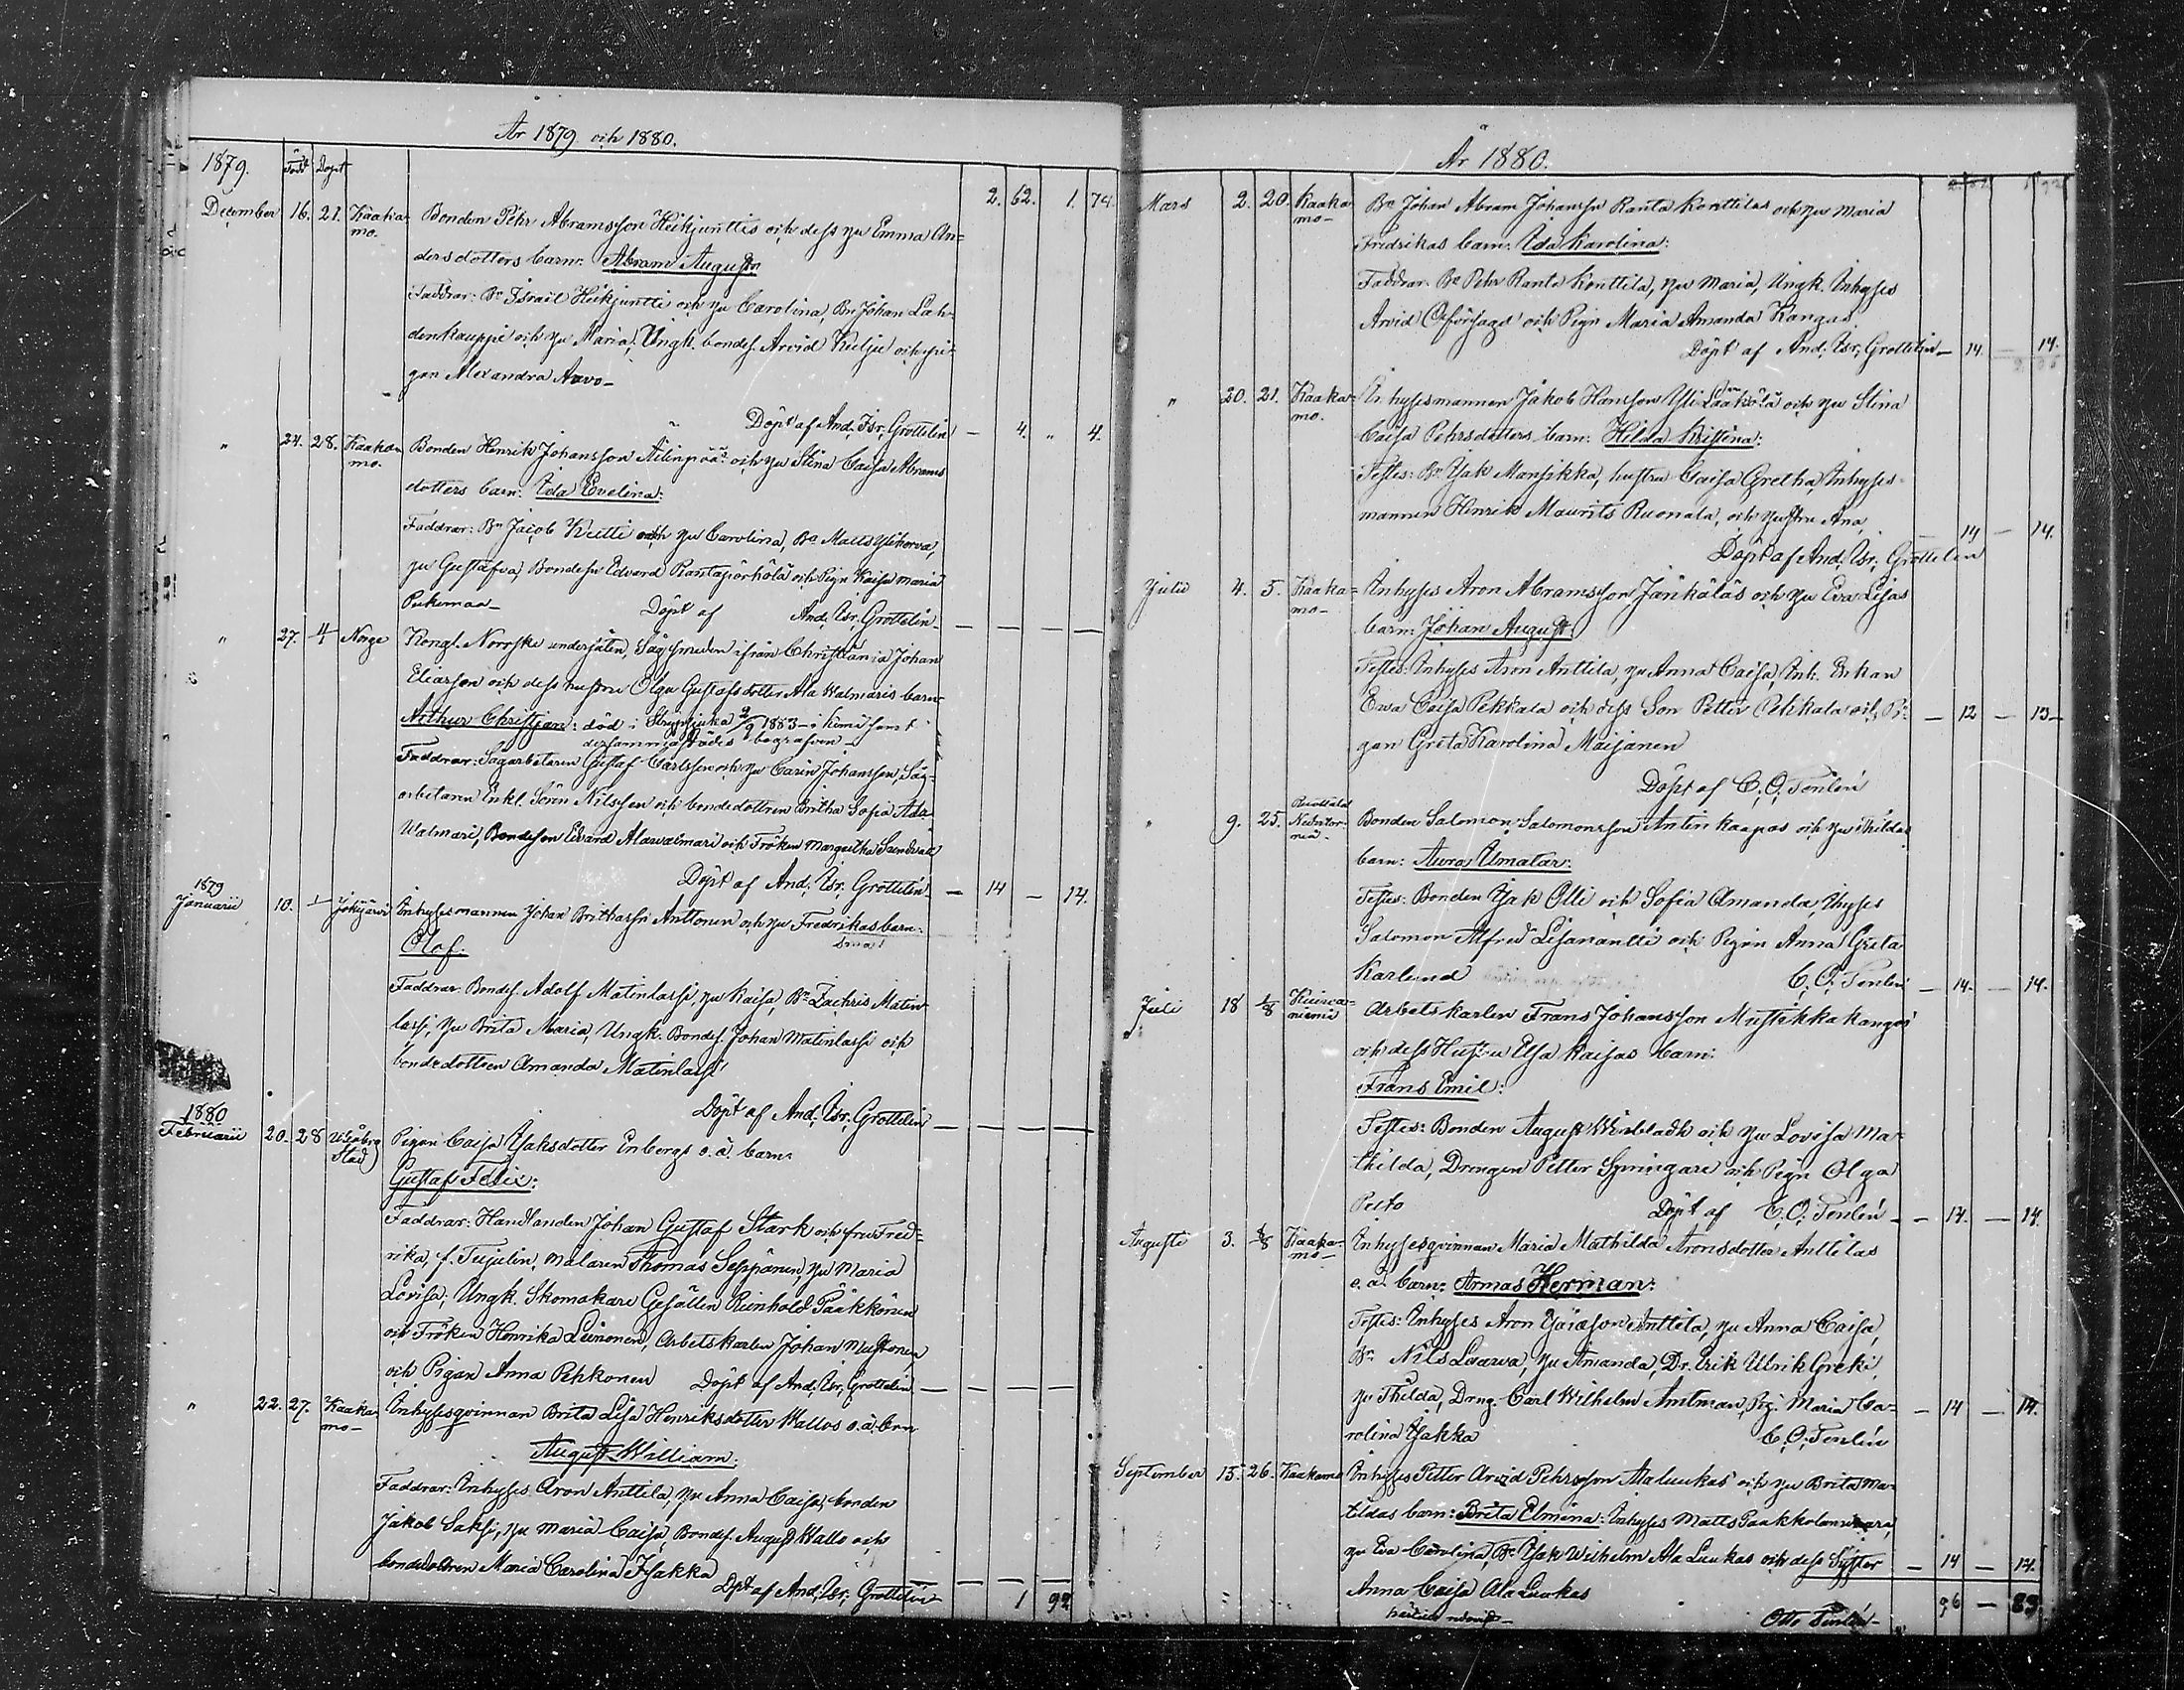 År 1879 och 1880.
1879. Född Döpt
2. 62. 1. 74.
December 16. 21. Kaaka= Bonden Pehr Abramsson Heikjunttis och dess hu Emma An=
mo. dersdotters barn: Abram August
Faddrar: Bn Israil Heikjuntti och hu Carolina, Bn Johan Lah=
denkauppi och hu Maria, Ungk. bondes. Arvid och pi=
gan Alexandra Arvo-
Döpt af And. Isr. Grottelin — 4. " 4.
" 24. 28. Kaaka= Bonden Henrik Johansson och hu Stina Caisa Abrams
mo. dotters barn: Ida Evelina:
Faddrar: Bn Jacob och hu Carolina, Bn Matts Ylikorva,
hu Gustafva, Bondesn Edvard Rantapörhölä och Pign Kaisa Maria
Döpt af And. Isr. Grottelin —
" 27. 4/1 Norge Kongl. Norrske undersåten, Sågsmeden ifrån Christiania Johan
Eliasson och dess hustru Olga Gustafsdotter Ala Walmaris barn
Arthur Christian: död i 1883 — i Kimi samt
dersammastädes begrafven —
Faddrar: Sågarbetaren Gustaf Carlsson och hu Carin Johansson, Såg=
arbetaren Enkl. Sörn Nilsson och bondedottren Britha Sofia Ala
Walmari, Bondeson Edvard Alawalmari och Fröken Margretha Sundvall
Döpt af And. Isr. Grottelin. — 14 — 14.
1879
Januarii 10. Jokijärvi Inhysesmannen Johan Anttonen och hu Fredrikas barn:
Olof.
Faddrar: Bondes. Adolf Matinlassi, hu Kaisa, Bn Zachris Matin
lassi, hu Brita Maria, Ungk. Bondes. Johan Matinlassi och
bondedottren Amanda Matinlassi
Döpt af And. Isr. Grottelin —
1880
Februarii 20. 28 Uleåborg Pigan Caisa Isaksdotter Enbergs o.ä. barn:
Stad Gustaf Felix:
Faddrar: Handlanden Johan Gustaf Stark och fru Fred=
rika, f. målaren Thomas Seppänen, hu Maria
Lovisa, Ungk. Skomakare Gesällen Reinhold Pääkkönen
och Fröken Henrika Leinonen, Arbetskarlen Johan Mustonen
och Pigan Anna Pehkonen Döpt af And. Isr. Grottelin —
" 22. 27. Kaaka= Inhysesqvinnan Brita Lisa Henriksdotter Wallos o.ä. barn
mo- August William:
Faddrar: Inhyses Aron Anttila, hu Anna Caisa, bonden
Jakob Saksi, hu Maria Caisa, Bondes. August Wallo och
bondedottren Maria Carolina Isakka
Dpt af And. Isr. Grottelin
1 92
År 1880.
Mars 2. 20. Kaaka Bn Johan Abram Johansson Ranta Konttilas och hu Maria
mo- Fredrikas barn: Ida Karolina:
Faddrar: Bn Pehr Ranta Konttila, hu Maria, Ungk. Inhyses
Arvid och Pign Maria Amanda Kangas
Döpt af And. Isr. Grottelin — 14. — 14.
" 20. 21. Kaaka= Inhysesmannen Jakob Hansson Yli och hu Stina
mo. Caisa Pehrsdotters barn: Hilda Kristina:
Testes: Bn Isak Mansikka, hustru Caisa Gretha, Inhyses
mannen Henrik Maurits Ruonala, och hustru Ana
— 14 — 14.
Döpt af And. Isr. Grottelin
4. 5. Kaaka= Inhyses Aron Abramsson Jänkäläs och hu Eva Lisas
mo- barn: Johan August:
Testes: Inhyses Aron Anttila, hu Anna Caisa, Inh. Enkan
Ewa Caisa Pekkala och dess Son Petter Pekkala och Pi=
— 12 — 13 —
gan Greta Karolina Maijanen
Döpt af C. O. Tenlén
" 9. 25. Nedertor= Bonden Salomon Salomonsson Antinkaapos och hu Thildas
neå- barn: Aura Umatar:
Testes: Bonden Isak Olli och Sofia Amanda, Inhyses
Salomon Alfred Lisanantti och Pigan Anna Greta
Karlund C. O. Tenlén — 14. — 14.
Juli 18 1/8 Kuiva= Arbetskarlen Frans Johansson Mustikkakangas
niemi och dess Hustru Elsa Kaisas barn:
Frans Emil:
Testes: Bonden August och hu Lovisa Ma=
thilda, Drengen Petter Springare och Pign Olga
Döpt af C. O. Tenlén — 14. — 14.
Augusti 3. Kaaka= Inhysesqvinnan Maria Mathilda Aronsdotter Anttilas
mo- o.ä. barn: Armas Herman:
Testes: Inhyses Aron Anttila, hu Anna Caisa,
Bn Nils hu Amanda, Dr. Erik Ulrik Greki,
hu Thilda, Drng. Carl Wilhelm Antman, Pig. Maria Ca=
— 14 — 14.
rolina Isakka C. O. Tenlén
September 15. 26. Kaakamo Inhyses Petter Arvid Pehrsson Alaluukas och hu Brita Ma=
tildas barn: Brita Elmina: Inhyses Matts
hu Eva Carolina, Bn Isak Wilhelm Ala Luukas och dess Syster — 14 — 14.
Anna Caisa Ala Luukas
96 — 83
Otto Tenlén-